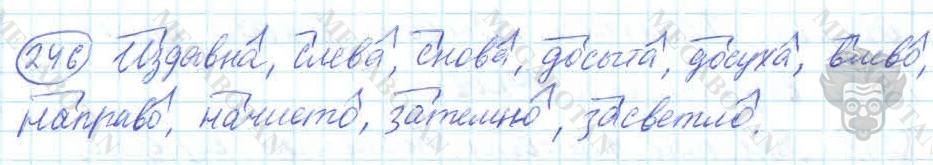 246 Издавна, слева, снова, досыта, досуха, влево,
направо, начисто, затемно, засветло.